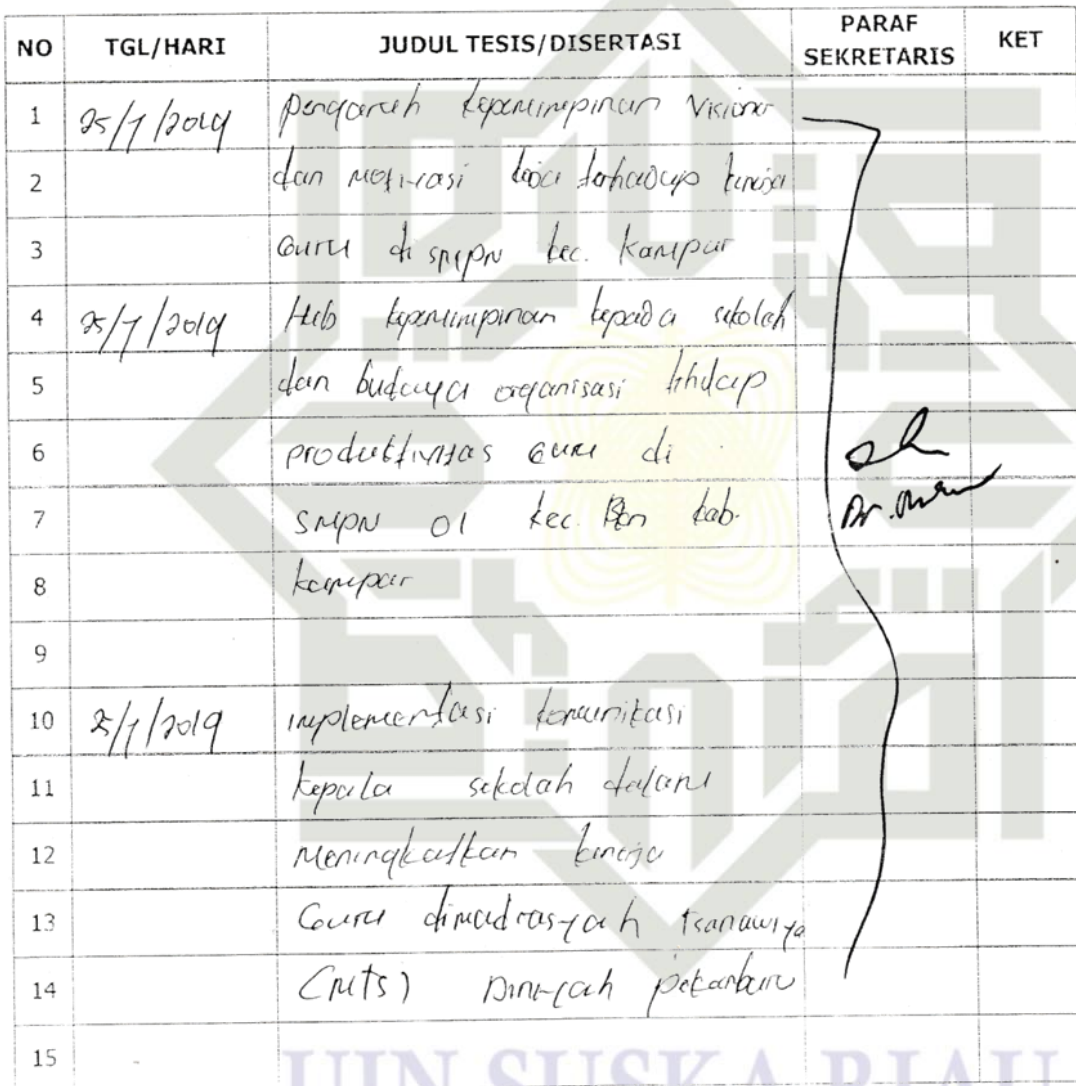 NO TGL/HARI JUDUL TESIS/DISERTASI PARAF SEKRETARIS KET
1 25/7/2019 pengaruh kepemimpinan Visioner
2 dan motivasi kerja terhadap kinerja
3 Guru di SMPN kec. Kampar
4 25/7/2019 Hub kepemimpinan kepada sekolah
5 dan budaya organisasi thdap
6 produktivitas Guru di
7 SMPN 01 kec. kab.
8 kampar
9
10 25/7/2019 implementasi komunikasi
11 kepala sekolah dalam
12 Meningkatkan kinerja
13 Guru dimadrasyah tsanawiya
14 (MTS) pekanbaru
15
UIN SUSKA RIAU